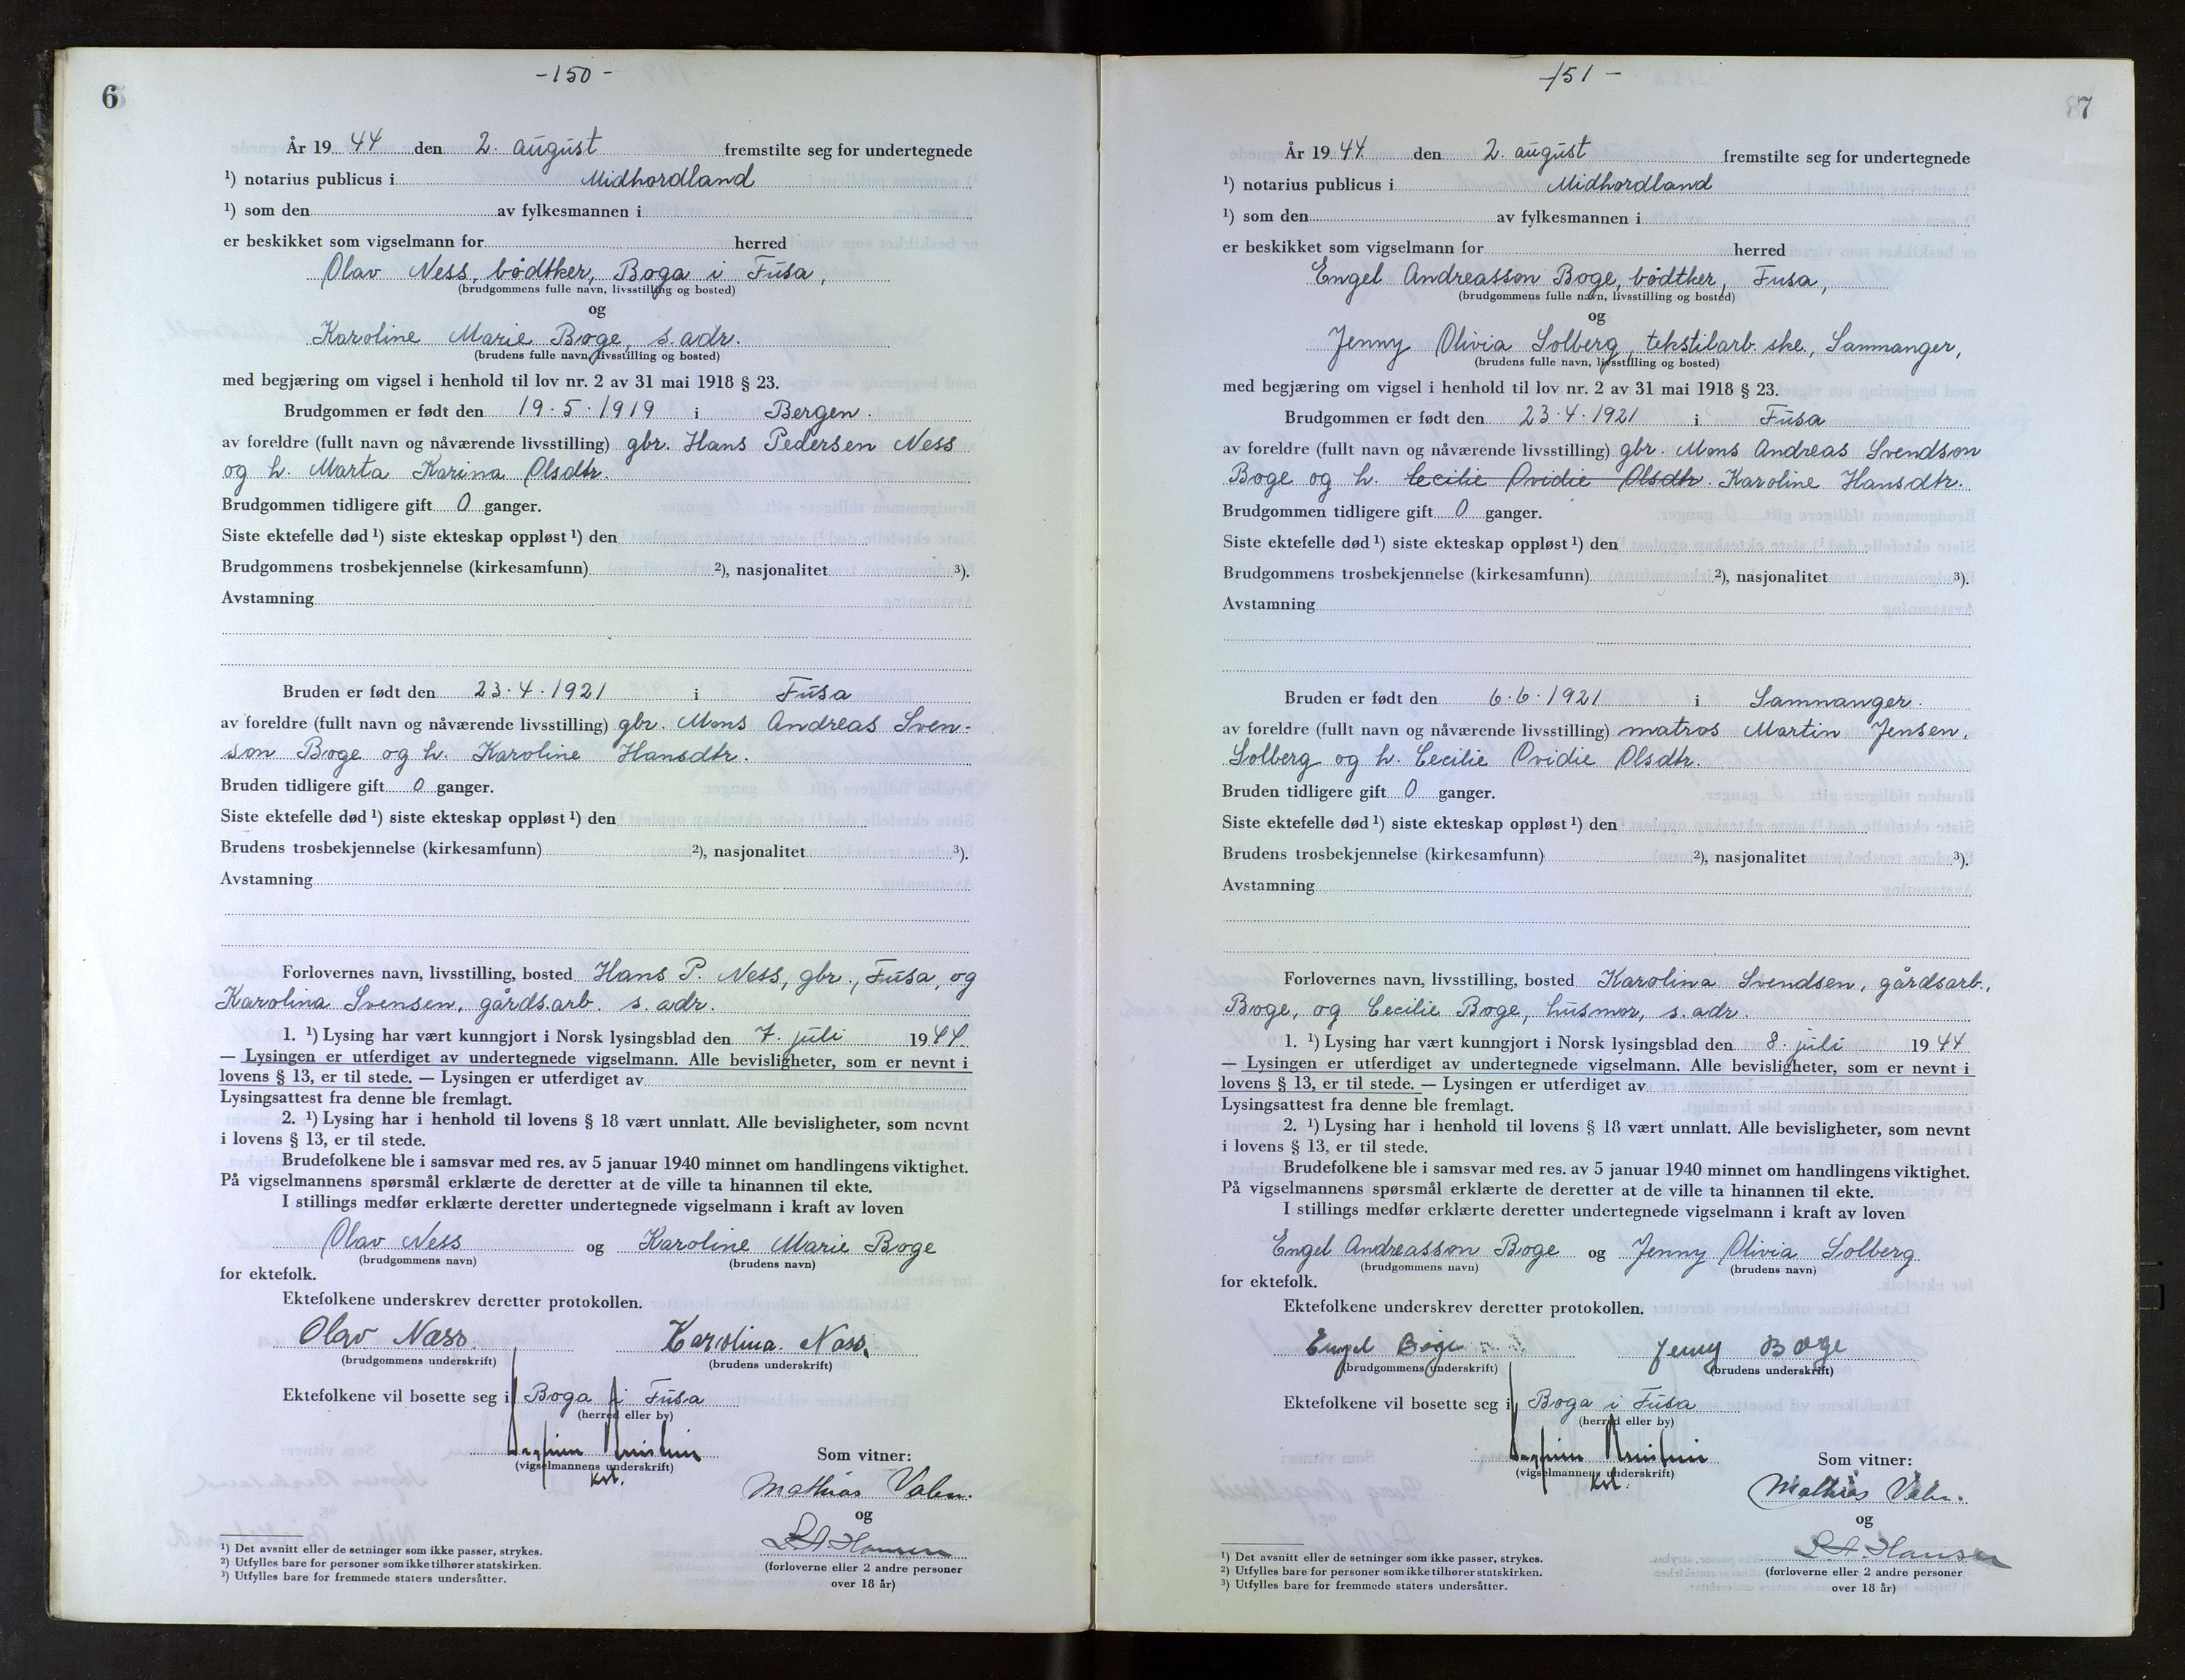 -150-
6
År 19 44 den 2. august fremstilte seg for undertegnede
¹) notarius publicus i Midhordland
¹) som den av fylkesmannen i
er beskikket som vigselmann for herred
Olav Ness, bødtker, Boga i Fusa,
(brudgommens fulle navn, livsstilling og bosted)
og
Karoline Marie Boge, s. adr.
(brudens fulle navn, livsstilling og bosted)
med begjæring om vigsel i henhold til lov nr. 2 av 31 mai 1918 § 23.
Brudgommen er født den 19.5.1919 i Bergen.
av foreldre (fullt navn og nåværende livsstilling) gbr. Hans Pedersen Ness
og h. Marta Karina Olsdtr.
Brudgommen tidligere gift 0 ganger.
Siste ektefelle død ¹) siste ekteskap oppløst ¹) den
Brudgommens trosbekjennelse (kirkesamfunn) ²), nasjonalitet ³).
Avstamning
Bruden er født den 23.4.1921 i Fusa
av foreldre (fullt navn og nåværende livsstilling) gbr. Mons Andreas Sven-
son Boge og h. Karoline Hansdtr.
Bruden tidligere gift 0 ganger.
Siste ektefelle død ¹) siste ekteskap oppløst ¹) den
Brudens trosbekjennelse (kirkesamfunn) ²), nasjonalitet ³).
Avstamning
Forlovernes navn, livsstilling, bosted Hans P. Ness, gbr., Fusa, og
Karolina Svensen, gårdsarb. s. adr.
1. ¹) Lysing har vært kunngjort i Norsk lysingsblad den 7. juli 1944
— Lysingen er utferdiget av undertegnede vigselmann. Alle bevisligheter, som er nevnt i
lovens § 13, er til stede. — Lysingen er utferdiget av
Lysingsattest fra denne ble fremlagt.
2. ¹) Lysing har i henhold til lovens § 18 vært unnlatt. Alle bevisligheter, som nevnt
i lovens § 13, er til stede.
Brudefolkene ble i samsvar med res. av 5 januar 1940 minnet om handlingens viktighet.
På vigselmannens spørsmål erklærte de deretter at de ville ta hinannen til ekte.
I stillings medfør erklærte deretter undertegnede vigselmann i kraft av loven
Olav Ness og Karoline Marie Boge
(brudgommens navn) (brudens navn)
for ektefolk.
Ektefolkene underskrev deretter protokollen.
Olav Næss. Karolina. Næss.
(brudgommens underskrift) (brudens underskrift)
Ektefolkene vil bosette seg i Boga i Fusa
(herred eller by)
(vigselmannens underskrift)
kst.
Som vitner:
Mathias Valen.
og
L A Hansen
(forloverne eller 2 andre personer
over 18 år)
¹) Det avsnitt eller de setninger som ikke passer, strykes.
²) Utfylles bare for personer som ikke tilhører statskirken.
³) Utfylles bare for fremmede staters undersåtter.
-151-
7
År 19 44. den 2. august fremstilte seg for undertegnede
¹) notarius publicus i Midhordland
¹) som den av fylkesmannen i
er beskikket som vigselmann for herred
Engel Andreasson Boge, bødtker, Fusa,
(brudgommens fulle navn, livsstilling og bosted)
og
Jenny Olivia Solberg, tekstilarb. ske., Samnanger,
(brudens fulle navn, livsstilling og bosted)
med begjæring om vigsel i henhold til lov nr. 2 av 31 mai 1918 § 23.
Brudgommen er født den 23.4.1921 i Fusa
av foreldre (fullt navn og nåværende livsstilling) gbr. Mons Andreas Svendson
Boge og h. Cecilie Ovidie Olsdtr. Karoline Hansdtr.
Brudgommen tidligere gift 0 ganger.
Siste ektefelle død ¹) siste ekteskap oppløst ¹) den
Brudgommens trosbekjennelse (kirkesamfunn) ²), nasjonalitet ³).
Avstamning
Bruden er født den 6.6.1921 i Samnanger.
av foreldre (fullt navn og nåværende livsstilling) matros Martin Jensen,
Solberg og h. Cecilie Ovidie Olsdtr.
Bruden tidligere gift 0 ganger.
Siste ektefelle død ¹) siste ekteskap oppløst ¹) den
Brudens trosbekjennelse (kirkesamfunn) ²), nasjonalitet ³).
Avstamning
Forlovernes navn, livsstilling, bosted Karolina Svendsen, gårdsarb.,
Boge, og Cecilie Boge, husmor, s. adr.
1. ¹) Lysing har vært kunngjort i Norsk lysingsblad den 8. juli 1944
— Lysingen er utferdiget av undertegnede vigselmann. Alle bevisligheter, som er nevnt i
lovens § 13, er til stede. — Lysingen er utferdiget av
Lysingsattest fra denne ble fremlagt.
2. ¹) Lysing har i henhold til lovens § 18 vært unnlatt. Alle bevisligheter, som nevnt
i lovens § 13, er til stede.
Brudefolkene ble i samsvar med res. av 5 januar 1940 minnet om handlingens viktighet.
På vigselmannens spørsmål erklærte de deretter at de ville ta hinannen til ekte.
I stillings medfør erklærte deretter undertegnede vigselmann i kraft av loven
Engel Andreasson Boge og Jenny Olivia Solberg
(brudgommens navn) (brudens navn)
for ektefolk.
Ektefolkene underskrev deretter protokollen.
Engel Boge Jenny Boge
(brudgommens underskrift) (brudens underskrift)
Ektefolkene vil bosette seg i Boga i Fusa
(herred eller by)
(vigselmannens underskrift)
kst.
Som vitner:
Mathias Valen.
og
L. A. Hansen
(forloverne eller 2 andre personer
over 18 år)
¹) Det avsnitt eller de setninger som ikke passer, strykes.
²) Utfylles bare for personer som ikke tilhører statskirken.
³) Utfylles bare for fremmede staters undersåtter.